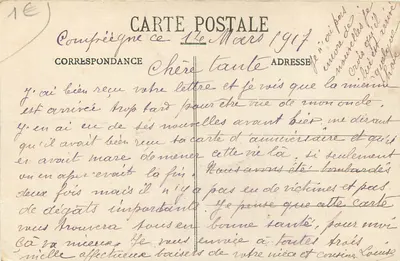 1€
CARTE POSTALE
Compreignac ce 12 Mars 1917
CORRESPONDANCE
ADRESSE
Chère tante
J'ai bien reçu votre lettre et je vois que la mienne
est arrivée trop tard pour être vue de mon oncle.
J'en ai eu de ses nouvelles avant hier me disant
qu'il avait bien reçu sa carte d'anniversaire et qu'il
en avait marre de mener cette vie là, si seulement
on en apercevait la fin. Nous avons été bombardés
deux fois mais il n'y a pas eu de victimes et pas
de dégats importants. Je pense que cette carte
vous trouvera tous en bonne santé, pour moi
çà va mieux. Je vous envoie à toutes trois
mille affectueux baisers de votre nièce et cousine Louise
Je n'ai pas
encore de
nouvelles de